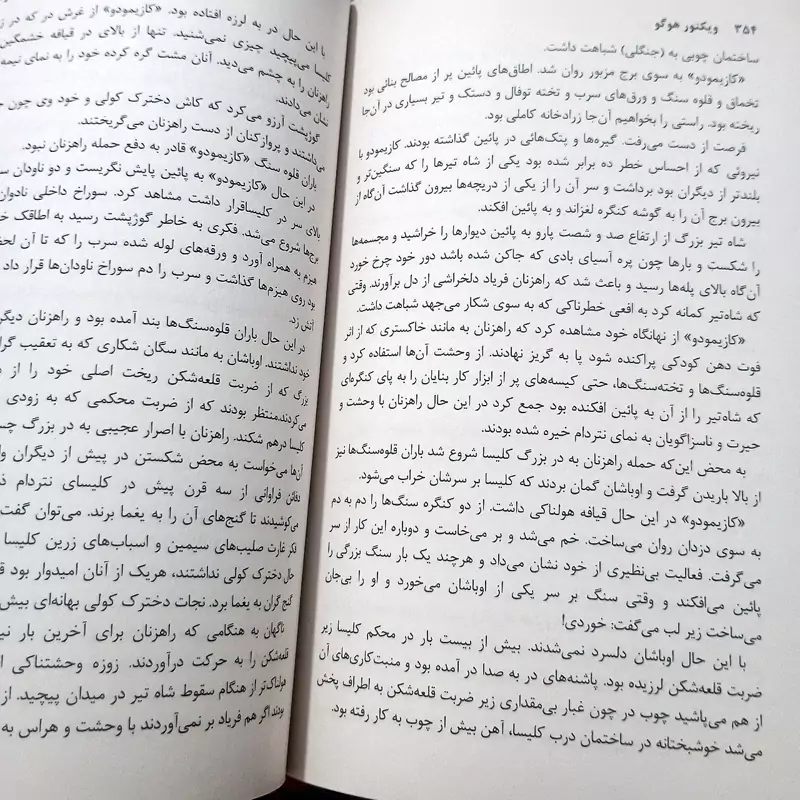 ۳۵۴ ویکتور هوگو
ساختمان چوبی به (جنگلی) شباهت داشت.
«کازیمودو» به سوی برج مزبور روان شد. اطاق‌های پائین پر از مصالح بنائی بود
تخماق و قلوه سنگ و ورق‌های سرب و تخته توفال و دستک و تیر بسیاری در آن‌جا
ریخته بود. راستی را بخواهیم آن‌جا زرادخانه کاملی بود.
فرصت از دست می‌رفت. گیره‌ها و پتک‌هائی در پائین گذاشته بودند. کازیمودو با
نیروئی که از احساس خطر ده برابر شده بود یکی از شاه تیرها را که سنگین‌تر و
بلندتر از دیگران بود برداشت و سر آن را از یکی از دریچه‌ها بیرون گذاشت آن‌گاه از
بیرون برج آن را به گوشه کنگره لغزاند و به پائین افکند.
شاه تیر بزرگ از ارتفاع صد و شصت پارو به پائین دیوارها را خراشید و مجسمه‌ها
را شکست و بارها چون پره آسیای بادی که جاکن شده باشد دور خود چرخ خورد
آن‌گاه بالای پله‌ها رسید و باعث شد که راهزنان فریاد دلخراشی از دل برآورند. وقتی
شاه‌تیر کمانه کرد به افعی خطرناکی که به سوی شکار می‌جهد شباهت داشت.
«کازیمودو» از نهانگاه خود مشاهده کرد که راهزنان به مانند خاکستری که از اثر
فوت دهن کودکی پراکنده شود پا به گریز نهادند. از وحشت آن‌ها استفاده کرد و
قلوه‌سنگ‌ها و تخته‌سنگ‌ها، حتی کیسه‌های پر از ابزار کار بنایان را به پای کنگره‌ای
که شاه‌تیر را از آن به پائین افکنده بود جمع کرد در این حال راهزنان با وحشت و
حیرت و ناسزاگویان به نمای نتردام خیره شده بودند.
به محض این‌که حمله راهزنان به در بزرگ کلیسا شروع شد باران قلوه‌سنگ‌ها نیز
از بالا باریدن گرفت و اوباشان گمان بردند که کلیسا بر سرشان خراب می‌شود.
«کازیمودو» در این حال قیافه هولناکی داشت. از دو کنگره سنگ‌ها را دم به دم
به سوی دزدان روان می‌ساخت. خم می‌شد و بر می‌خاست و دوباره این کار از سر
می‌گرفت. فعالیت بی‌نظیری از خود نشان می‌داد و هرچند یک بار سنگ بزرگی را
پائین می‌افکند و وقتی سنگ بر سر یکی از اوباشان می‌خورد و او را بی‌جان
می‌ساخت زیر لب می‌گفت: خوردی!
با این حال اوباشان دلسرد نمی‌شدند. بیش از بیست بار در محکم کلیسا زیر
ضربت قلعه‌شکن لرزیده بود. پاشنه‌های در به صدا در آمده بود و منبت‌کاری‌های آن
از هم می‌پاشید چوب در چون غبار بی‌مقداری زیر ضربت قلعه‌شکن به اطراف پخش
می‌شد خوشبختانه در ساختمان درب کلیسا، آهن بیش از چوب به کار رفته بود.
با این حال در به لرزه افتاده بود. «کازیمودو» از غرش در که در
کلیسا می‌پیچید چیزی نمی‌شنید. تنها از بالای در قیافه خشمگین
راهزنان را به چشم می‌دید. آنان مشت گره کرده خود را به نمای نیمه
نشان می‌دادند.
گوژپشت آرزو می‌کرد که کاش دخترک کولی و خود وی چون
می‌داشتند و پروازکنان از دست راهزنان می‌گریختند.
باران قلوه سنگ «کازیمودو» قادر به دفع حمله راهزنان نبود.
در این حال «کازیمودو» به پائین پایش نگریست و دو ناودان
بالای سر در کلیساقرار داشت مشاهد کرد. سوراخ داخلی ناودان
برج‌ها شروع می‌شد. فکری به خاطر گوژپشت رسید به اطاقک
هیزم به همراه آورد و ورقه‌های لوله شده سرب را که تا آن
بود روی هیزم‌ها گذاشت و سرب را دم سوراخ ناودان‌ها قرار داد
آتش زد.
در این حال باران قلوه‌سنگ‌ها بند آمده بود و راهزنان
خود نداشتند. اوباشان به مانند سگان شکاری که به تعقیب
بزرگ که از ضربت قلعه‌شکن ریخت اصلی خود را از
می‌کردند،منتظر بودند که از ضربت محکمی که به زودی
کلیسا درهم شکند. راهزنان با اصرار عجیبی به در بزرگ
آن‌ها می‌خواست به محض شکستن در پیش از دیگران
دفائن فراوانی از سه قرن پیش در کلیسای نتردام
می‌کوشیدند تا گنج‌های آن را به یغما برند. می‌توان گفت
فکر غارت صلیب‌های سیمین و اسباب‌های زرین کلیسا
حال دخترک کولی نداشتند، هریک از آنان امیدوار بود
گنج گران به یغما برد. نجات دخترک کولی بهانه‌ای بیش
ناگهان به هنگامی که راهزنان برای آخرین بار
قلعه‌شکن را به حرکت درآوردند. زوزه وحشتناکی
هولناک‌تر از هنگام سقوط شاه تیر در میدان پیچید. از
بودند اگر هم فریاد بر نمی‌آوردند با وحشت و هراس به